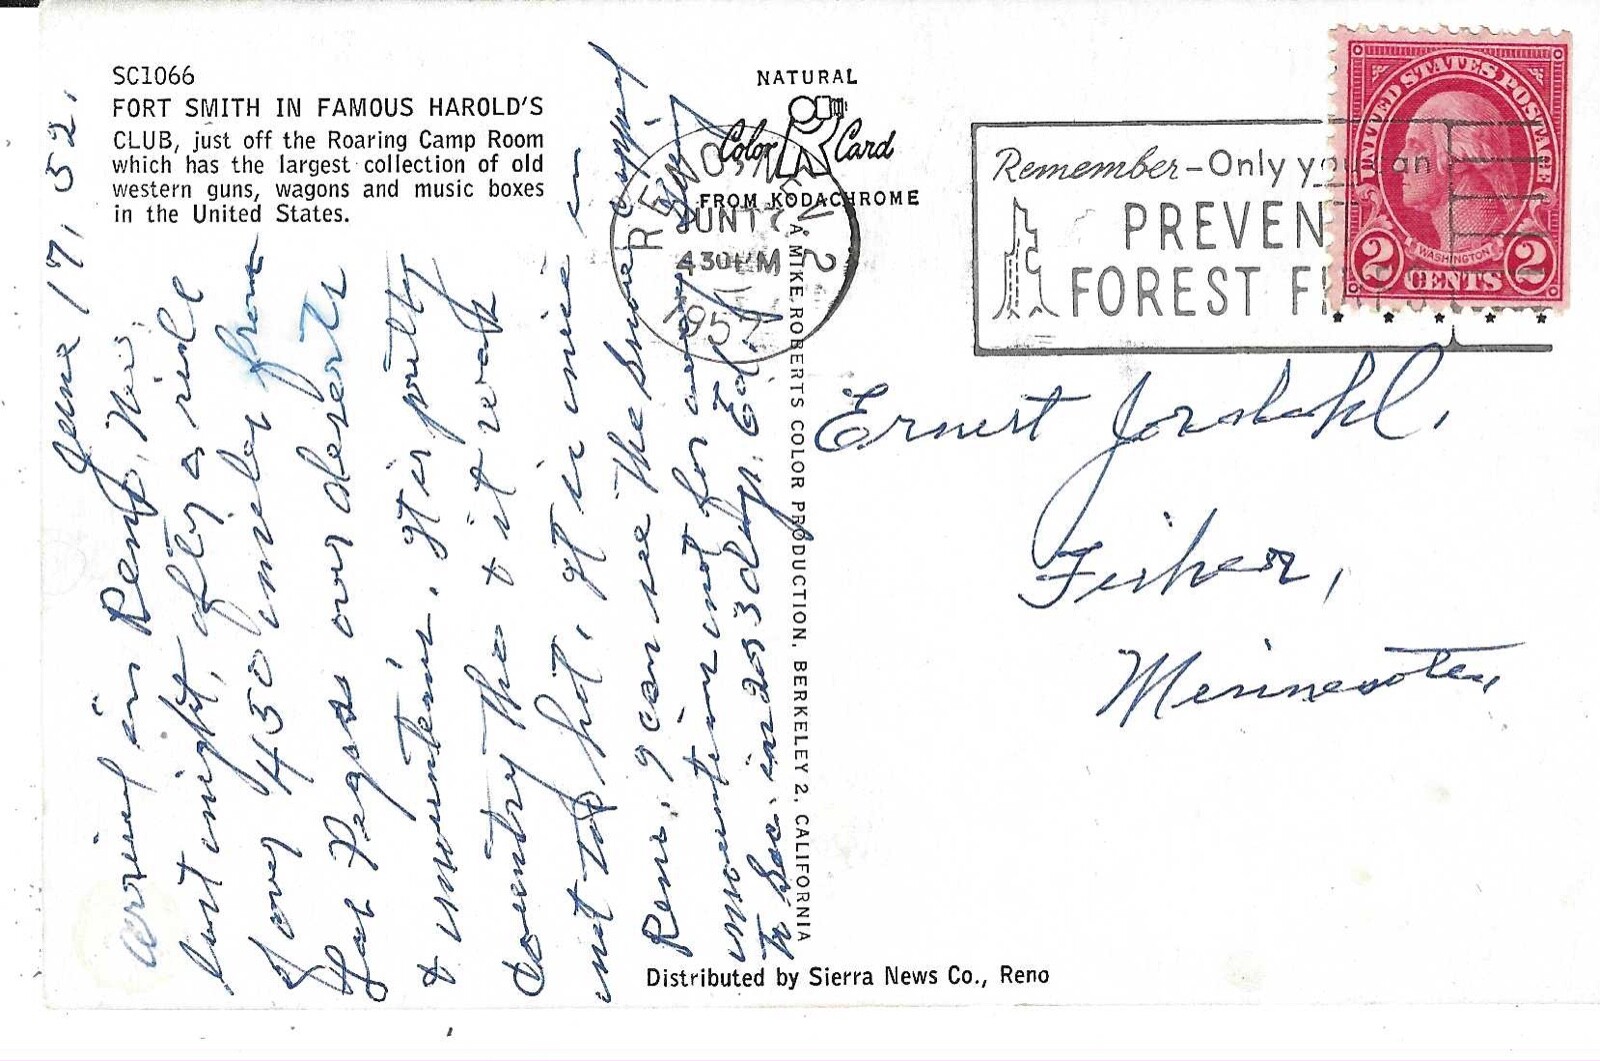 SC1066
FORT SMITH IN FAMOUS HAROLD'S
CLUB, just off the Roaring Camp Room
which has the largest collection of old
western guns, wagons and music boxes
in the United States.
NATURAL
Color Card
FROM KODACHROME
RENO NEV. 2
JUN 17
4 30 PM
1957
Remember-Only you can
PREVENT
FOREST FIRES
UNITED STATES POSTAGE
WASHINGTON
2 CENTS 2
June 17, 52.
arrived in Reno, Nev.
last night, after a ride
of over 450 miles from
Las Vegas over deserts
& mountains. It is pretty
country tho & it was
not too hot. It is nice in
Reno. I can see the snow capped
mountains not far away.
to in 2 or 3 days. Ed.
A MIKE ROBERTS COLOR PRODUCTION, BERKELEY 2, CALIFORNIA
Ernest Jordahl.
Fisher,
Minnesota
Distributed by Sierra News Co., Reno